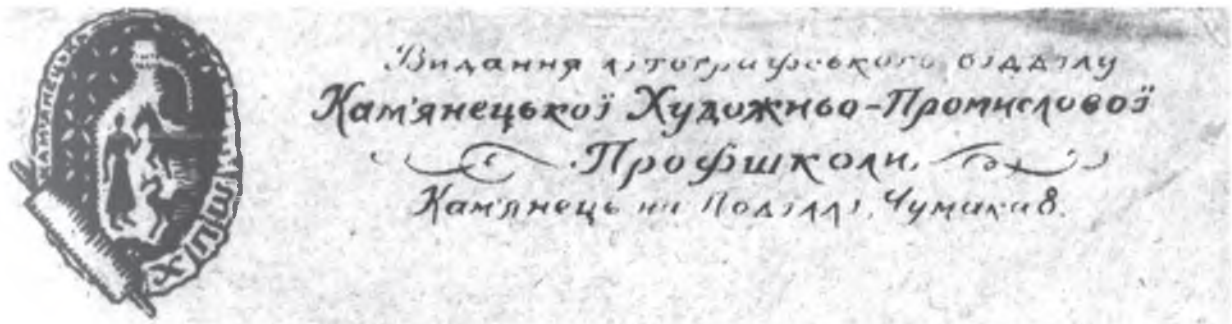 КАМ'ЯНЕЦЬКА
ХПШ
Видання літографського відділу
Кам'янецької Художньо-Промислової
Профшколи.
Кам'янець на Поділлі, Чумаки 8.